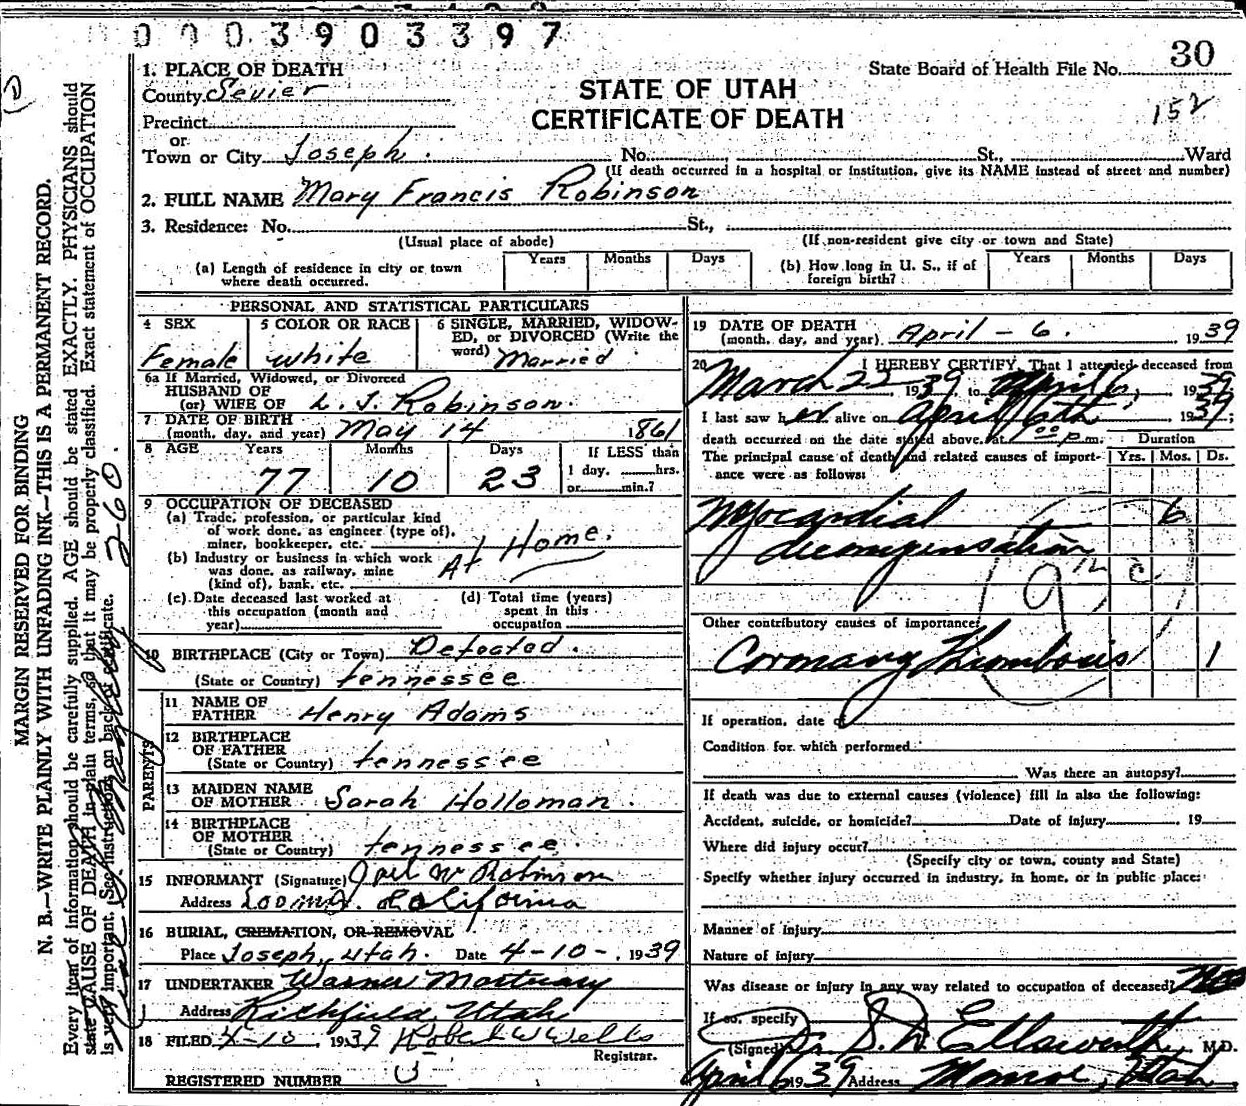 0003903397
30
State Board of Health File No.
152
1. PLACE OF DEATH
County Sevier
STATE OF UTAH
CERTIFICATE OF DEATH
Precinct
or
Town or City Joseph. No. St., Ward
(If death occurred in a hospital or institution, give its NAME instead of street and number)
2. FULL NAME Mary Francis Robinson
3. Residence: No. St.,
(Usual place of abode) (If non-resident give city or town and State)
(a) Length of residence in city or town where death occurred. Years Months Days
(b) How long in U. S., if of foreign birth? Years Months Days
PERSONAL AND STATISTICAL PARTICULARS
4 SEX Female
5 COLOR OR RACE white
6 SINGLE, MARRIED, WIDOWED, OR DIVORCED (Write the word) Married
6a If Married, Widowed, or Divorced
HUSBAND OF
(or) WIFE OF L. J. Robinson.
7 DATE OF BIRTH
(month, day, and year) May 14 1861
8 AGE Years Months Days If LESS than
1 day, hrs.
or min.?
77 10 23
9 OCCUPATION OF DECEASED
(a) Trade, profession, or particular kind
of work done, as engineer (type of),
miner, bookkeeper, etc.
At Home.
(b) Industry or business in which work
was done, as railway, mine
(kind of), bank, etc.
(c) Date deceased last worked at
this occupation (month and
year)
(d) Total time (years)
spent in this
occupation
10 BIRTHPLACE (City or Town) Defeated.
(State or Country) tennessee
PARENTS
11 NAME OF
FATHER Henry Adams
12 BIRTHPLACE
OF FATHER
(State or Country) tennessee
13 MAIDEN NAME
OF MOTHER Sarah Holloman.
14 BIRTHPLACE
OF MOTHER
(State or Country) tennessee.
15 INFORMANT (Signature) Joel W Robinson
Address Loomis. California
16 BURIAL, CREMATION, OR REMOVAL
Place Joseph, Utah. Date 4-10-, 1939
17 UNDERTAKER Warner Mortuary
Address Richfield, Utah
18 FILED 4-10, 1939 Robert W Wells
Registrar.
REGISTERED NUMBER
19 DATE OF DEATH
(month, day, and year) April - 6. 1939
20 I HEREBY CERTIFY, That I attended deceased from
March 22, 1939, to April 6, 1939;
I last saw her alive on April 6th, 1939;
death occurred on the date stated above, at 00 p.m.
Duration
Yrs. Mos. Ds.
The principal cause of death and related causes of importance were as follows:
Myocardial 6
decompensation
Other contributory causes of importance:
Coronary Thrombosis 1
If operation, date of
Condition for which performed
Was there an autopsy?
If death was due to external causes (violence) fill in also the following:
Accident, suicide, or homicide? Date of injury , 19
Where did injury occur?
(Specify city or town, county and State)
Specify whether injury occurred in industry, in home, or in public place:
Manner of injury
Nature of injury
Was disease or injury in any way related to occupation of deceased? No
If so, specify
(Signed) Ellsworth M.D.
April 6 1939 Address Monroe, Utah.
MARGIN RESERVED FOR BINDING
N. B.—WRITE PLAINLY WITH UNFADING INK—THIS IS A PERMANENT RECORD.
Every item of information should be carefully supplied. AGE should be stated EXACTLY. PHYSICIANS should
state CAUSE OF DEATH in plain terms, so that it may be properly classified. Exact statement of OCCUPATION
is very important. (See instructions on back of certificate.
260.